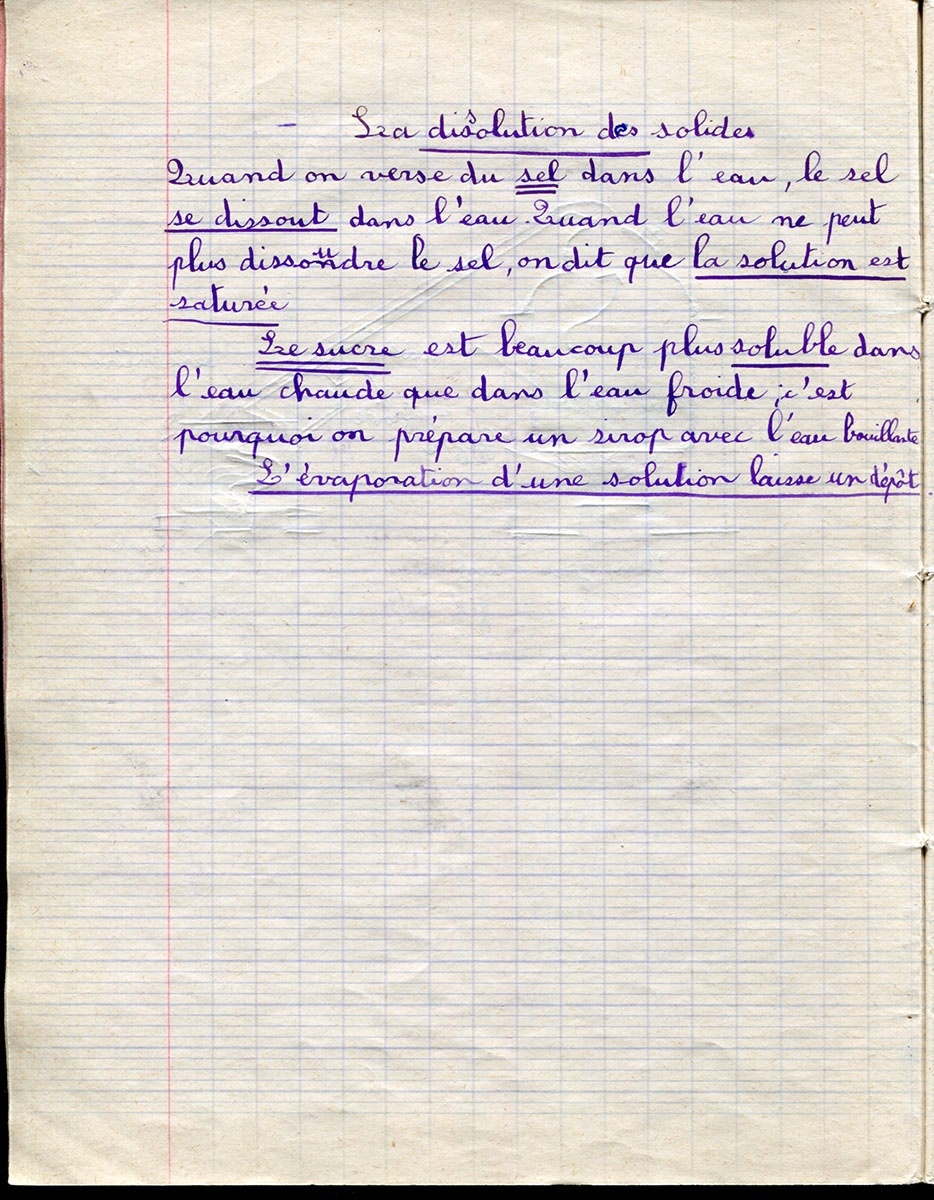 - La dissolution des solides
Quand on verse du sel dans l'eau, le sel
se dissout dans l'eau. Quand l'eau ne peut
plus dissoudre le sel, on dit que la solution est
saturée
Le sucre est beaucoup plus soluble dans
l'eau chaude que dans l'eau froide ; c'est
pourquoi on prépare un sirop avec l'eau bouillante
L'évaporation d'une solution laisse un dépôt.